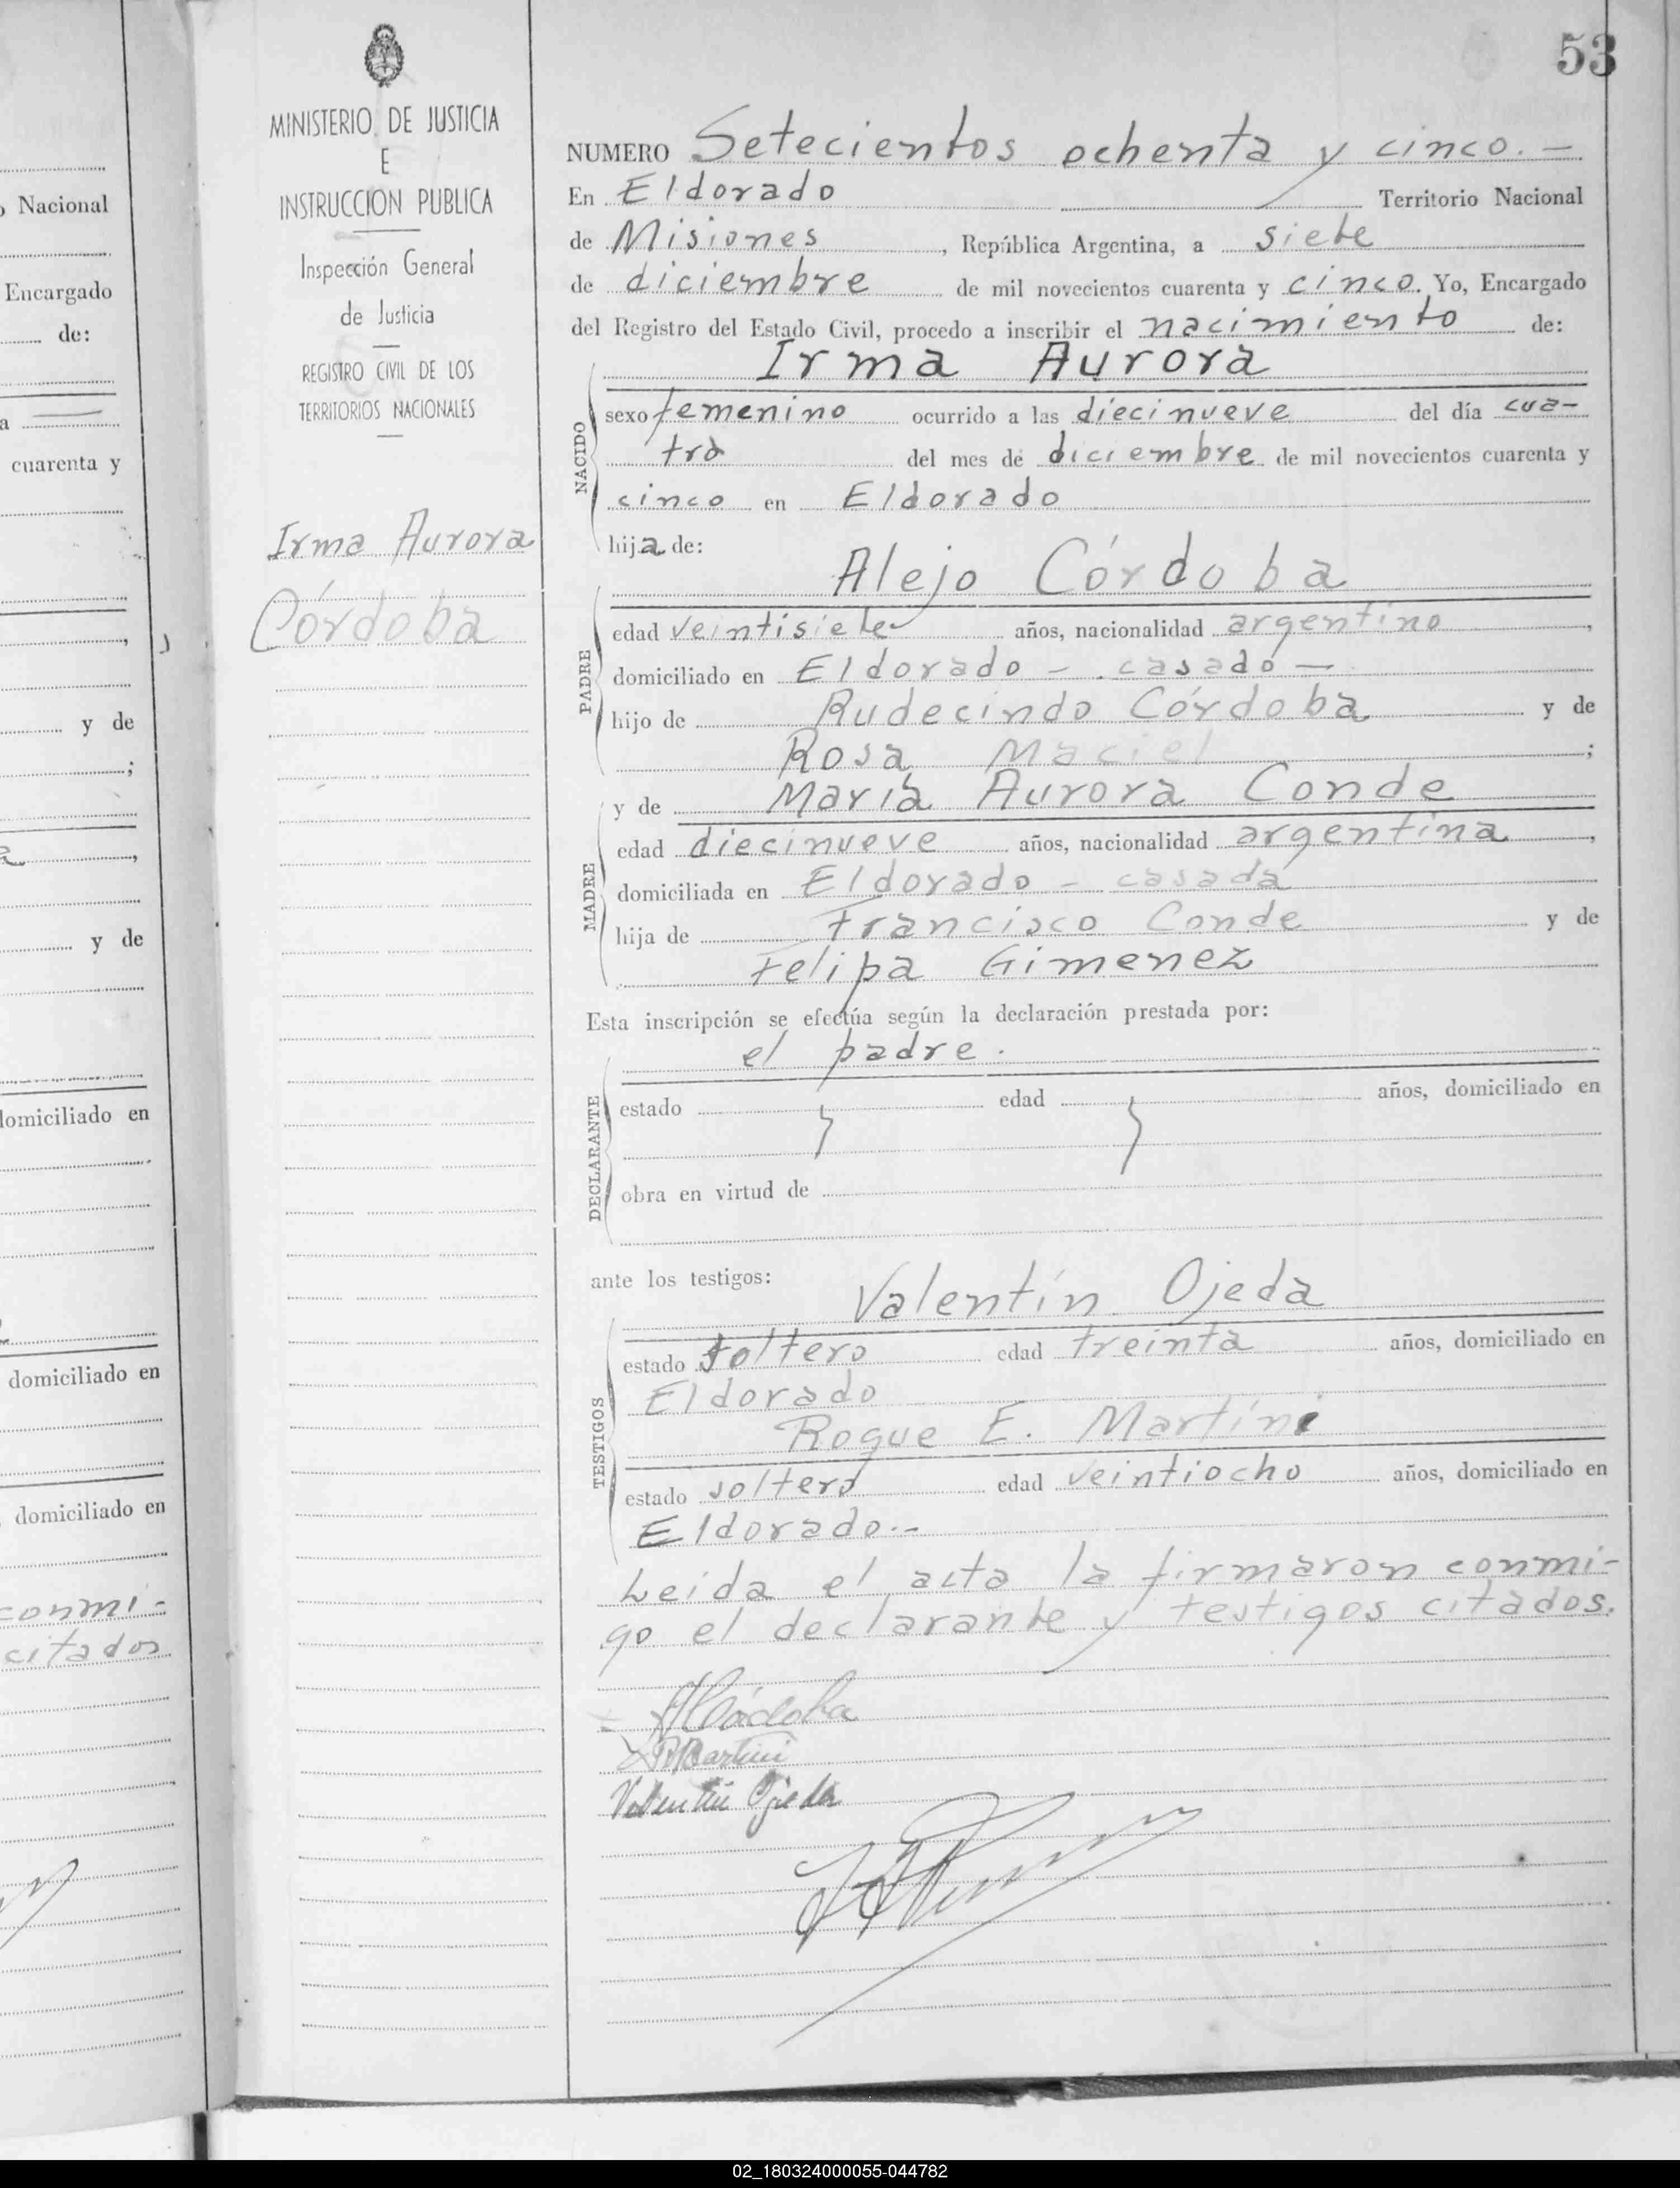 53
MINISTERIO DE JUSTICIA
E
INSTRUCCION PUBLICA
Inspección General
de Justicia
REGISTRO CIVIL DE LOS
TERRITORIOS NACIONALES
Irma Aurora
Córdoba
NUMERO Setecientos ochenta y cinco. —
En Eldorado Territorio Nacional
de Misiones, República Argentina, a siete
de diciembre de mil novecientos cuarenta y cinco. Yo, Encargado
del Registro del Estado Civil, procedo a inscribir el nacimiento de:
Irma Aurora
NACIDO
sexo femenino ocurrido a las diecinueve del día cua-
tro del mes de diciembre de mil novecientos cuarenta y
cinco en Eldorado
hija de:
Alejo Córdoba
PADRE
edad veintisiete años, nacionalidad argentino,
domiciliado en Eldorado - casado —
hijo de Rudecindo Córdoba y de
Rosa Maciel;
y de María Aurora Conde
MADRE
edad diecinueve años, nacionalidad argentina,
domiciliada en Eldorado - casada
hija de Francisco Conde y de
Felipa Gimenez
Esta inscripción se efectúa según la declaración prestada por:
el padre.
DECLARANTE
estado edad años, domiciliado en
obra en virtud de
ante los testigos:
Valentín Ojeda
TESTIGOS
estado soltero edad treinta años, domiciliado en
Eldorado
Roque E. Martini
estado soltero edad veintiocho años, domiciliado en
Eldorado.-
Leida el acta la firmaron conmi-
go el declarante y testigos citados.
ACórdoba
Martini
Valentin Ojeda
Nacional
Encargado
de:
a
cuarenta y
y de
;
,
y de
domiciliado en
domiciliado en
domiciliado en
conmi-
citados
02_180324000055-044782